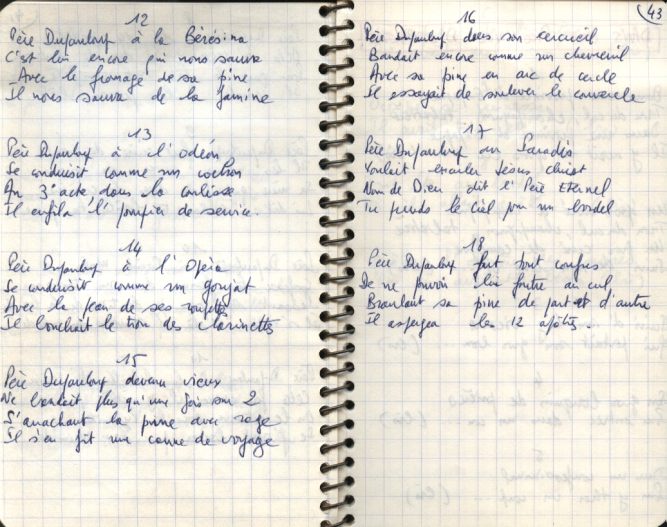 12
Père Dupanloup à la Bérésina
C'est lui encore qui nous sauva
Avec le fromage de sa pine
Il nous sauva de la famine
13
Père Dupanloup à l'Odéon
Se conduisit comme un cochon
Au 3e acte, dans la coulisse
Il enfila l'pompier de service.
14
Père Dupanloup à l'Opéra
Se conduisit comme un goujat
Avec la peau de ses roupettes
Il bouchait le trou des clarinettes
15
Père Dupanloup devenu vieux
Ne bandait plus qu'une fois sur 2
S'arrachant la pine avec rage
Il s'en fit une canne de voyage
43
16
Père Dupanloup dans son cercueil
Bandait encore comme un chevreuil
Avec sa pine en arc de cercle
Il essayait de soulever le couvercle
17
Père Dupanloup au Paradis
Voulait enculer Jésus Christ
Nom de Dieu dit l'Père Eternel
Tu prends le ciel pour un bordel
18
Père Dupanloup fut tout confus
De ne pouvoir lui foutre au cul,
Branlant sa pine de part et d'autre
Il aspergea les 12 apôtres.